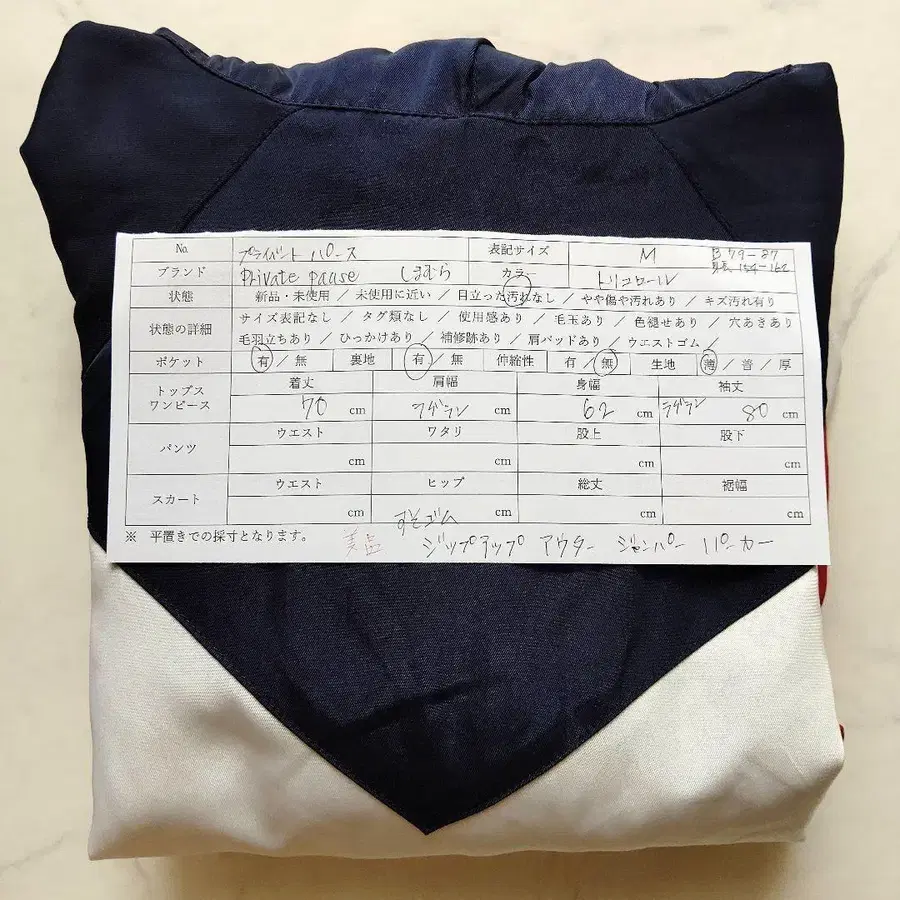 No. プライベート パース 表記サイズ M B 79-87
ブランド Private pause しまむら カラー トリコロール 身長 154-162
状態 新品・未使用 / 未使用に近い / 目立った汚れなし / やや傷や汚れあり / キズ汚れ有り
状態の詳細 サイズ表記なし / タグ類なし / 使用感あり / 毛玉あり / 色褪せあり / 穴あきあり
毛羽立ちあり / ひっかけあり / 補修跡あり / 肩パッドあり / ウエストゴム /
ポケット 有 / 無 裏地 有 / 無 伸縮性 有 / 無 生地 薄 / 普 / 厚
トップス ワンピース 着丈 肩幅 身幅 袖丈
70 cm ラグラン cm 62 cm ラグラン 80 cm
パンツ ウエスト ワタリ 股上 股下
cm cm cm cm
スカート ウエスト ヒップ 総丈 裾幅
cm cm cm cm
※ 平置きでの採寸となります。 美品 すそゴム
ジップアップ アウター ジャンパー パーカー